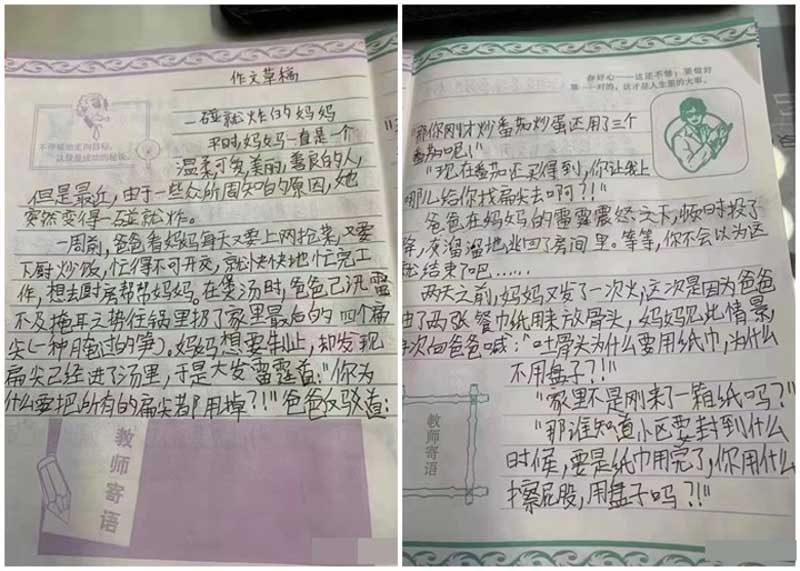 作文草稿
一碰就炸的妈妈
平时妈妈一直是一个
温柔可爱,美丽,善良的人,
但是最近,由于一些众所周知的原因,她
突然变得一碰就炸。
一周前,爸爸看妈妈每天又要上网抢菜,又要
下厨炒饭,忙得不可开交,就快快地忙完工
作,想去厨房帮帮妈妈。在煲汤时,爸爸已讯雷
不及掩耳之势往锅里扔了家里最后的四个扁
尖(一种腌过的笋)。妈妈想要制止,却发现
扁尖已经进了汤里,于是大发雷霆道:“你为
什么要把所有的扁尖都用掉?!”爸爸反驳道:
不停顿地走向目标,
这就是成功的秘诀。
教师寄语
你好心——这还不够;要做好
第一一对的,这才是人生里的大事。
“那你刚才炒番茄炒蛋还用了三个
番茄呢!”
“现在番茄还买得到,你让我上
哪儿给你找扁尖去啊?!”
爸爸在妈妈的雷霆震怒之下,顿时投了
降,灰溜溜地逃回了房间里。等等,你不会以为这
就结束了吧……
两天之前,妈妈又发了一次火,这次是因为爸爸
用了两张餐巾纸用来放骨头,妈妈见此情景,
再次向爸爸喊:“吐骨头为什么要用纸巾,为什么
不用盘子?!”
“家里不是刚来了一箱纸吗?”
“那谁知道小区要封到什么
时候,要是纸巾用完了,你用什么
擦屁股,用盘子吗?!”
教师寄语